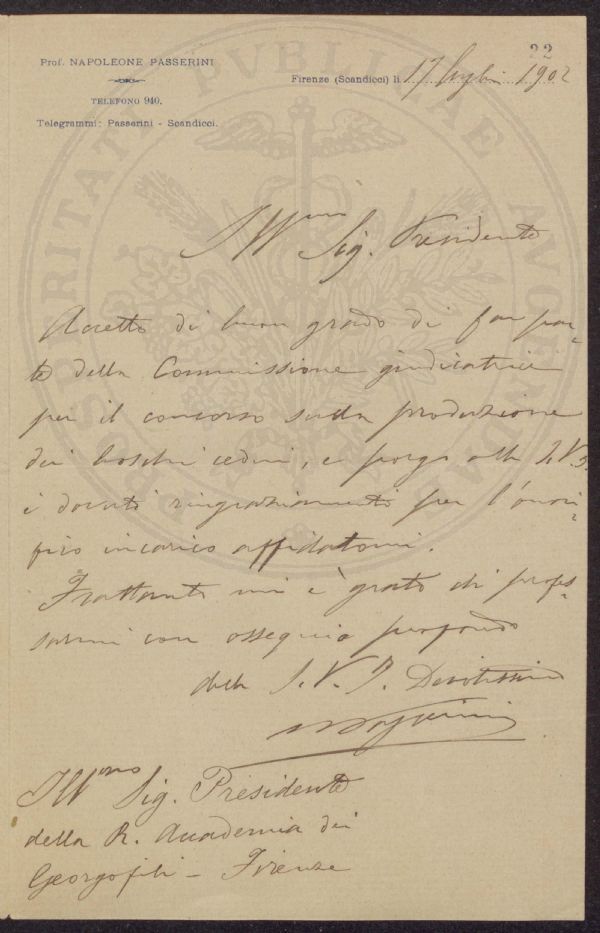 22
Prof. NAPOLEONE PASSERINI
TELEFONO 940.
Telegrammi: Passerini - Scandicci.
Firenze (Scandicci) li 17 luglio 1902
PROSPERITATI PVBLICAE AVGENDAE
Illmo Sig. Presidente
Accetto di buon grado di far par-
te della Commissione giudicatrice
per il concorso sulla produzione
dei boschi cedui, e porgo alla S.V.I.
i dovuti ringraziamenti per l'onori-
fico incarico affidatomi.
Frattanto mi è grato di profes-
sarmi con ossequio profondo
della S. V. I. Devotissimo
NPasserini
Illmo Sig. Presidente
della R. Accademia dei
Georgofili - Firenze